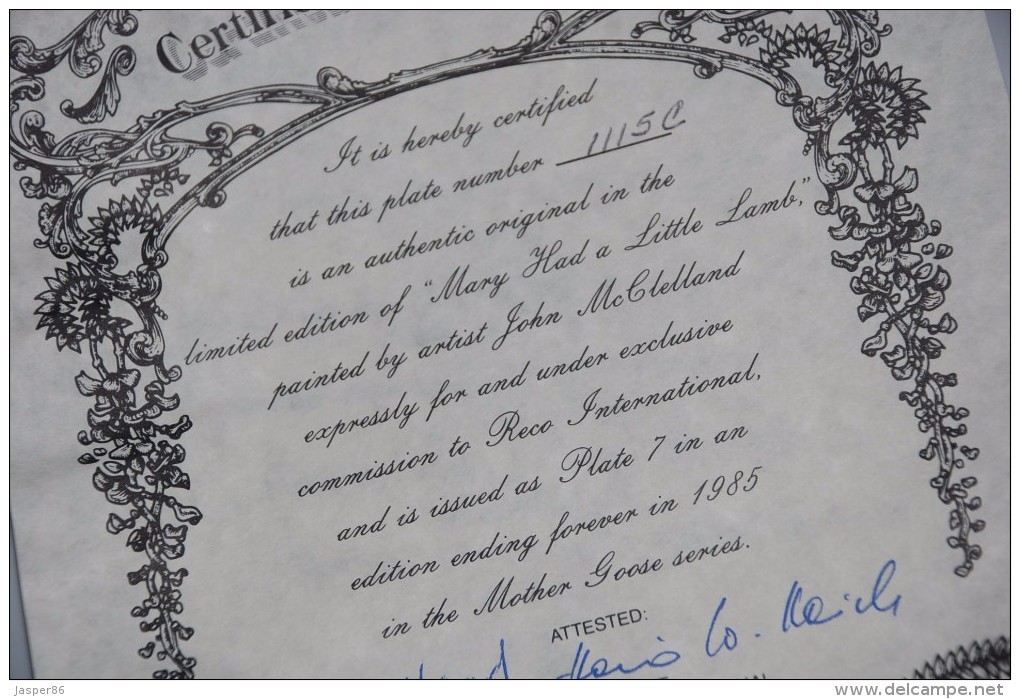 It is hereby certified
that this plate number 1115C
is an authentic original in the
limited edition of "Mary Had a Little Lamb,"
painted by artist John McClelland
expressly for and under exclusive
commission to Reco International,
and is issued as Plate 7 in an
edition ending forever in 1985
in the Mother Goose series.
ATTESTED:
Jasper86
www.delcampe.net